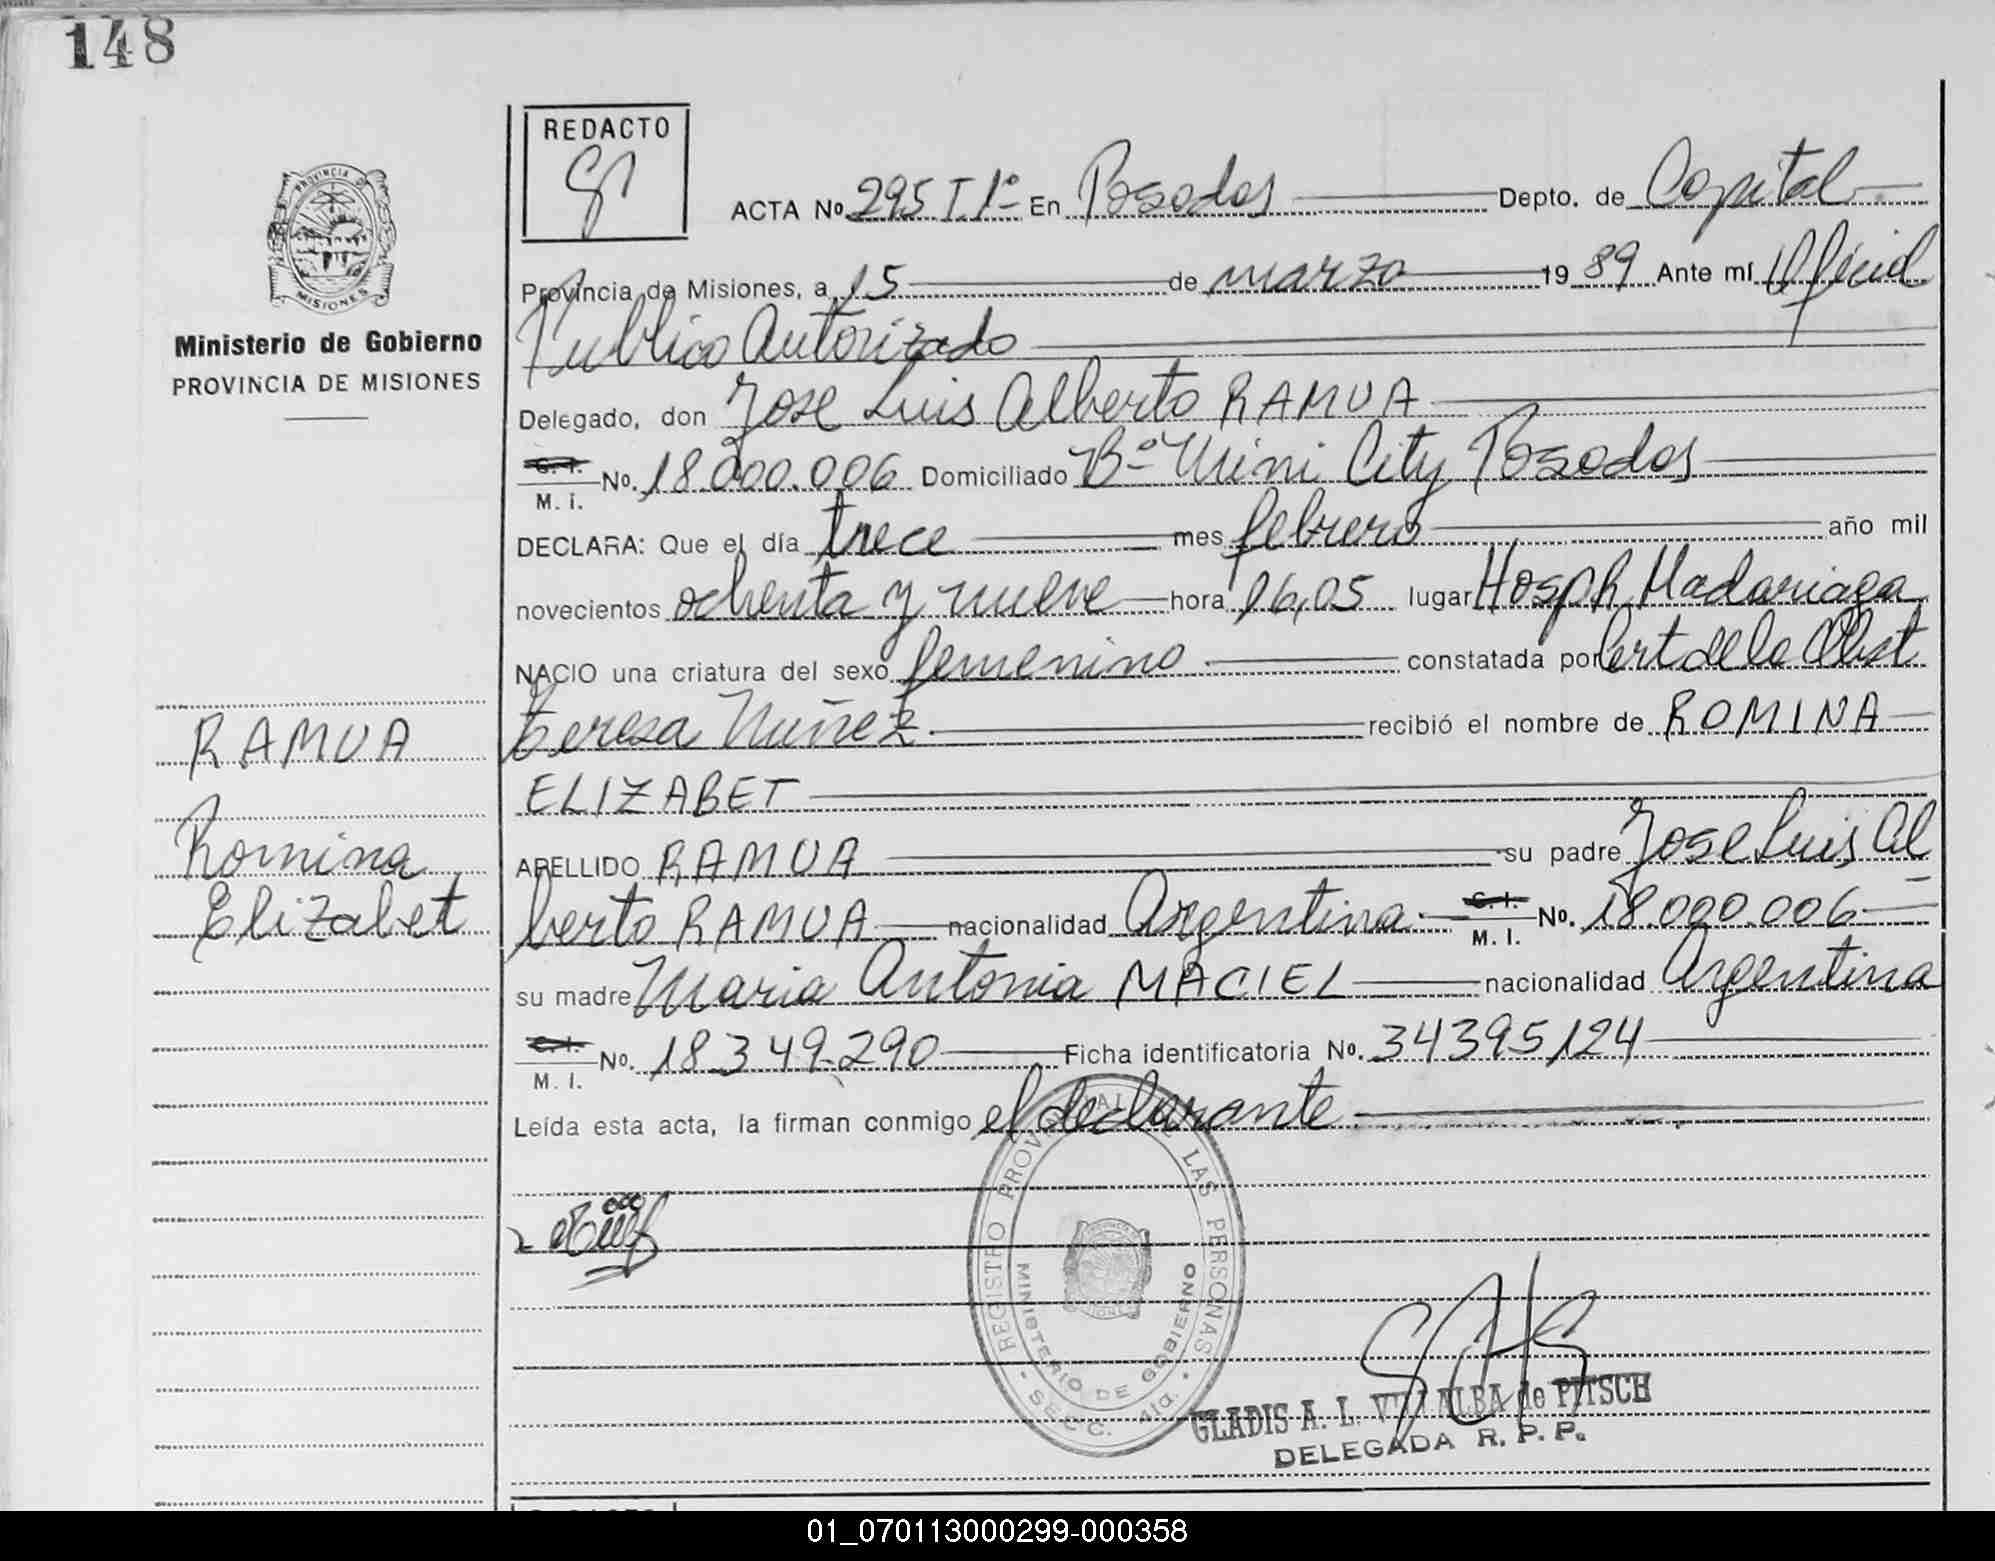 148
REDACTO
ACTA No. 295 T. 1º En Posadas Depto. de Capital
Provincia de Misiones, a 15 de marzo 19 89 Ante mí Oficial
Publico Autorizado
Delegado, don Jose Luis Alberto RAMUA
C. I.
M. I. No. 18.000.006 Domiciliado Bº Mini City Posadas
DECLARA: Que el día trece mes febrero año mil
novecientos ochenta y nueve hora 16,05 lugar Hosp. R. Madariaga
NACIO una criatura del sexo femenino constatada por Cert de la Obst
teresa Nuñez recibió el nombre de ROMINA
ELIZABET
APELLIDO RAMUA su padre Jose Luis Al
berto RAMUA nacionalidad Argentina C. I.
M. I. No. 18.000.006
su madre Maria Antonia MACIEL nacionalidad Argentina
C. I.
M. I. No. 18349.290 Ficha identificatoria No. 34395124
Leída esta acta, la firman conmigo el declarante
PROVINCIA DE
MISIONES
Ministerio de Gobierno
PROVINCIA DE MISIONES
RAMUA
Romina
Elizabet
REGISTRO PROVINCIAL DE LAS PERSONAS
MINISTERIO DE GOBIERNO
SECC. 4ta.
GLADIS A. L. VILLALBA de PITSCH
DELEGADA R. P. P.
01_070113000299-000358